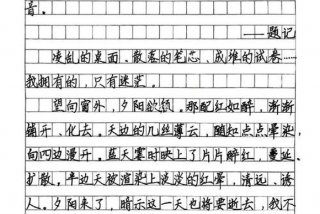 音。
——题记
凌乱的桌面、散落的笔芯、成堆的试卷……
我拥有的,只有迷茫。
望向窗外,夕阳欲颓。那酡红如醉,渐渐
铺开、化去,天边的几丝薄云,随知点点晕染,
向四边漫开。蓝天霎时映上了片片酡红,蔓延、
扩散。半边天被渲染上淡淡的红晕,清远、诱
人。夕阳来了,暗示这一天也将要逝去,我不